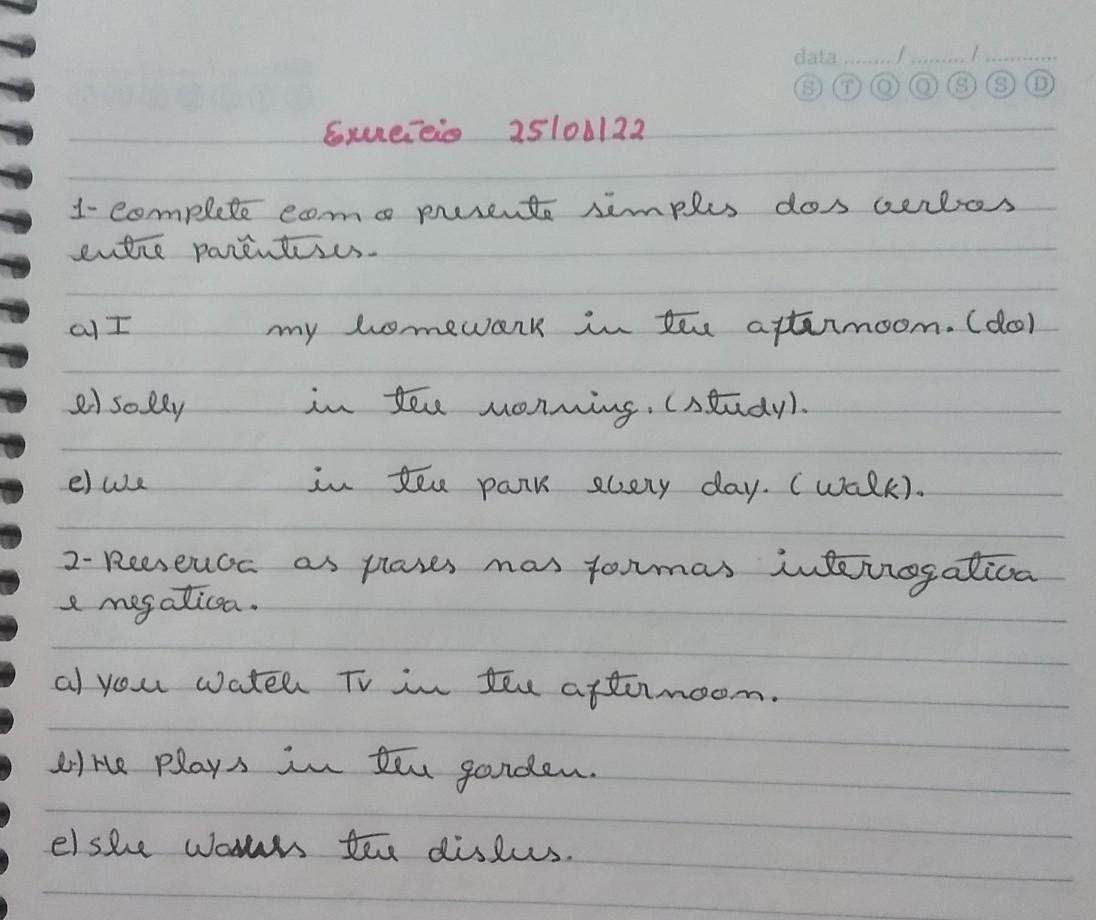 data ......../........./............
S T Q Q S S D
Exercício 25/08/22
1- Complete com o presente simples dos verbos
entre parênteses.
a) I my homework in the afternoon. (do)
b) Sally in the morning. (study).
c) We in the park every day. (walk).
2- Reescreva as frases nas formas interrogativa
e negativa.
a) You watch TV in the afternoon.
b) He plays in the garden.
c) She washes the dishes.